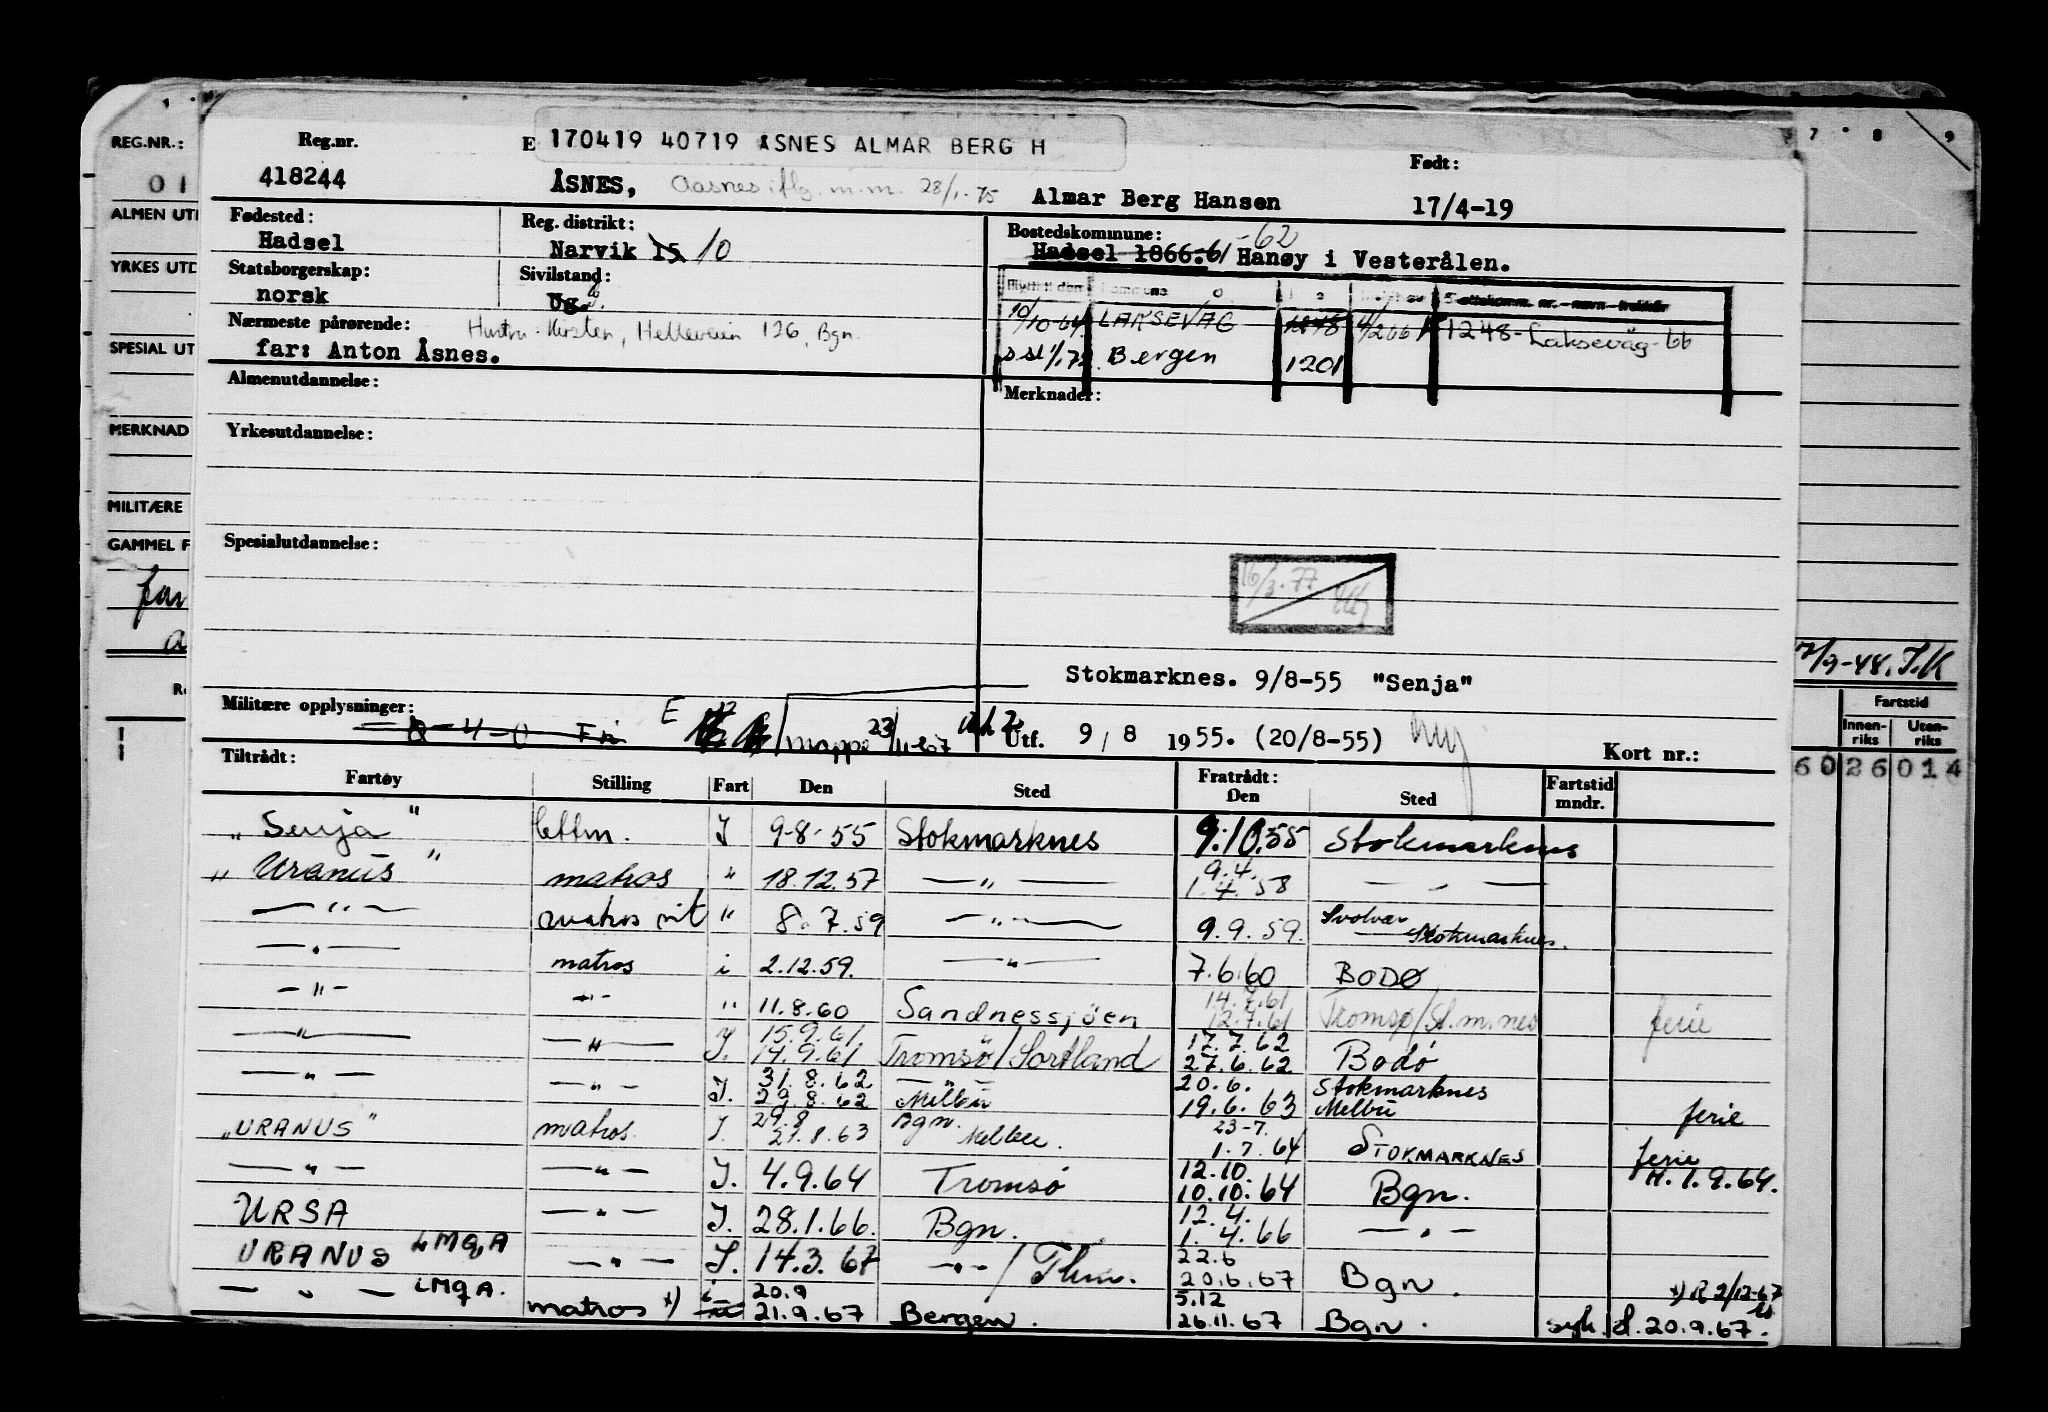 REG.NR.:
01
ALMEN UTD
YRKES UTD
SPESIAL UT
MERKNAD
MILITÆRE
GAMMEL F
far
7 8 9
Reg.nr. E 170419 40719 ÅSNES ALMAR BERG H Født:
418244 ÅSNES, Aasnes iflg. m.m. 28/1-75 Almar Berg Hansen 17/4-19
Fødested: Reg. distrikt: Bostedskommune: -62
Hadsel Narvik 15 10 Hadsel 1866.-61 Hanøy i Vesterålen.
Statsborgerskap: Sivilstand:
norsk Ug. g.
Nærmeste pårørende: Hustru - Kirsten, Helleveien 126, Bgn.
far: Anton Åsnes.
10/10-64 LAKSEVÅG 1248 1248-Laksevåg-66
Bergen 1201
Almenutdannelse: Merknader:
Yrkesutdannelse:
Spesialutdannelse:
16/3-77
Stokmarknes. 9/8-55 "Senja"
7/9-48. J.K
Militære opplysninger: E mappe 23/11-67 Utf. 9/8 1955. (20/8-55) Kort nr.:
Tiltrådt: Fratrådt:
Fartøy Stilling Fart Den Sted Den Sted Fartstid mndr.
Fartstid
Innen-riks Uten-riks
6026014
"Senja" lettm. I 9-8-55 Stokmarknes 9.10.55 Stokmarknes
"Uranus" matros " 18.12.57 —"— 9.4. 1.4.58 —"—
—"— matros vit " 8.7.59 —"— 9.9.59. Svolvær Stokmarknes.
—"— matros i 2.12.59. —"— 7.6.60 BODØ
—"— —"— " 11.8.60 Sandnessjøen 14.7.61 12.7.61 Tromsø/St.m.nes ferie
—"— —"— I. 15.9.61 14.9.61 Tromsø/Sortland 17.7.62 27.6.62 Bodø
—"— —"— I. 31.8.62 29.8.62 —"— Melbu 20.6. 19.6.63 Stokmarknes Melbu ferie
"URANUS" matros. I. 29.8 27.8.63 Bgn. Melbu. 23-7. 1.7.64 STOKMARKNES ferie
—"— —"— I. 4.9.64 Tromsø 12.10. 10.10.64 Bgn. H. 1.9.64.
URSA —"— I. 28.1.66. Bgn. 12.4. 1.4.66 —"—
URANUS LMQA —"— I. 14.3.67 —"—/Thm. 22.6 20.6.67 Bgn.
—"— LMQA. matros x) i 20.9 21.9.67 Bergen. 5.12 26.11.67 Bgn. syk. d. 20.9.67.
x) R 2/12-67